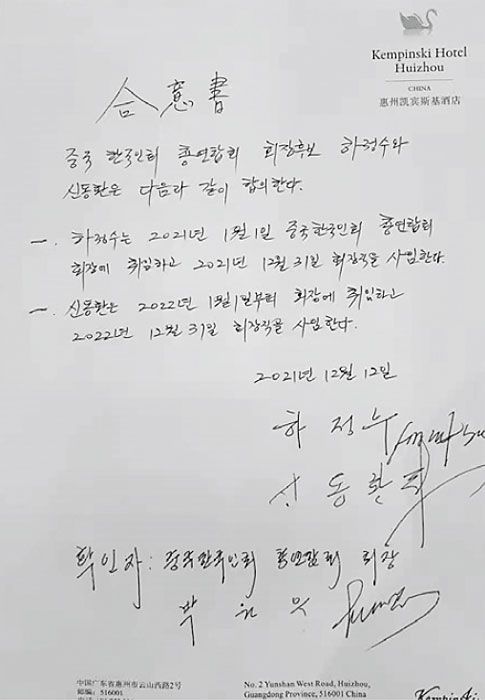 Kempinski Hotel
Huizhou
CHINA
惠州凯宾斯基酒店
合意書
중국 한국인회 총연합회 회장후보 하정수와
신동환은 다음과 같이 합의한다.
一. 하정수는 2021年 1月1일 중국한국인회 총연합회
회장에 취임하고 2021年 12月31일 회장직을 사임한다.
一. 신동환은 2022年 1月1일부터 회장에 취임하고
2022年 12月31일 회장직을 사임한다.
2021年 12月 12일
하 정 수
신 동 환
확인자: 중국한국인회 총연합회 회장
박 원 우
中国广东省惠州市云山西路2号
邮编: 516001
No. 2 Yunshan West Road, Huizhou,
Guangdong Province, 516001 China
Kempinski